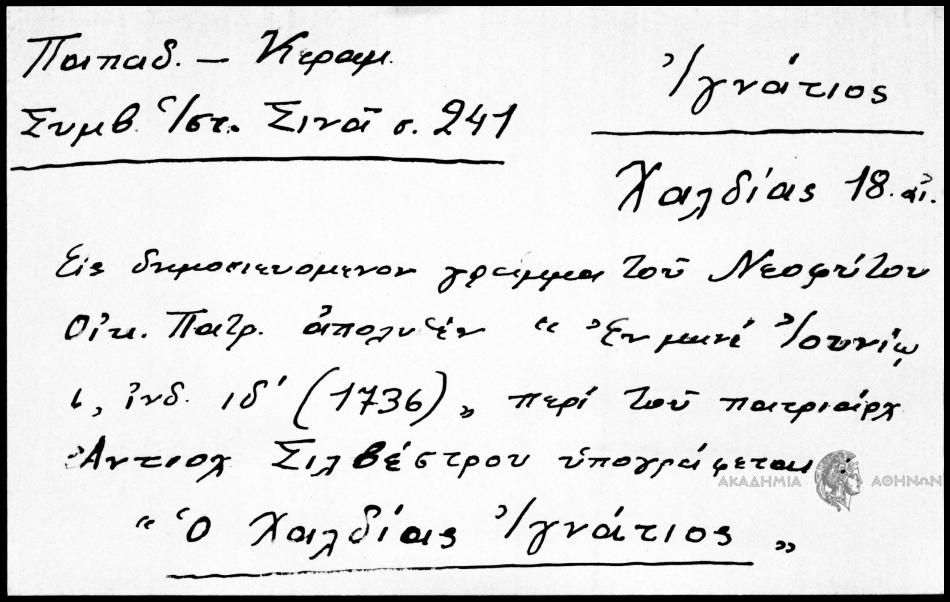 Παπαδ. – Κεραμ.
Συμβ. Ἱστ. Σινᾶ σ. 241
Ἰγνάτιος
Χαλδίας 18. αἰ.
Εἰς δημοσιευομενον γραμμα τοῦ Νεοφύτου
Οἰκ. Πατρ. ἀπολυθὲν “ Ἐν μηνὶ Ἰουνίῳ
ι, ἰνδ. ιδ' (1736) „ περὶ τοῦ πατριάρχ
Ἀντιοχ Σιλβέστρου ὑπογράφεται :
ΑΚΑΔΗΜΙΑ ΑΘΗΝΩΝ
“ Ὁ Χαλδίας Ἰγνάτιος „